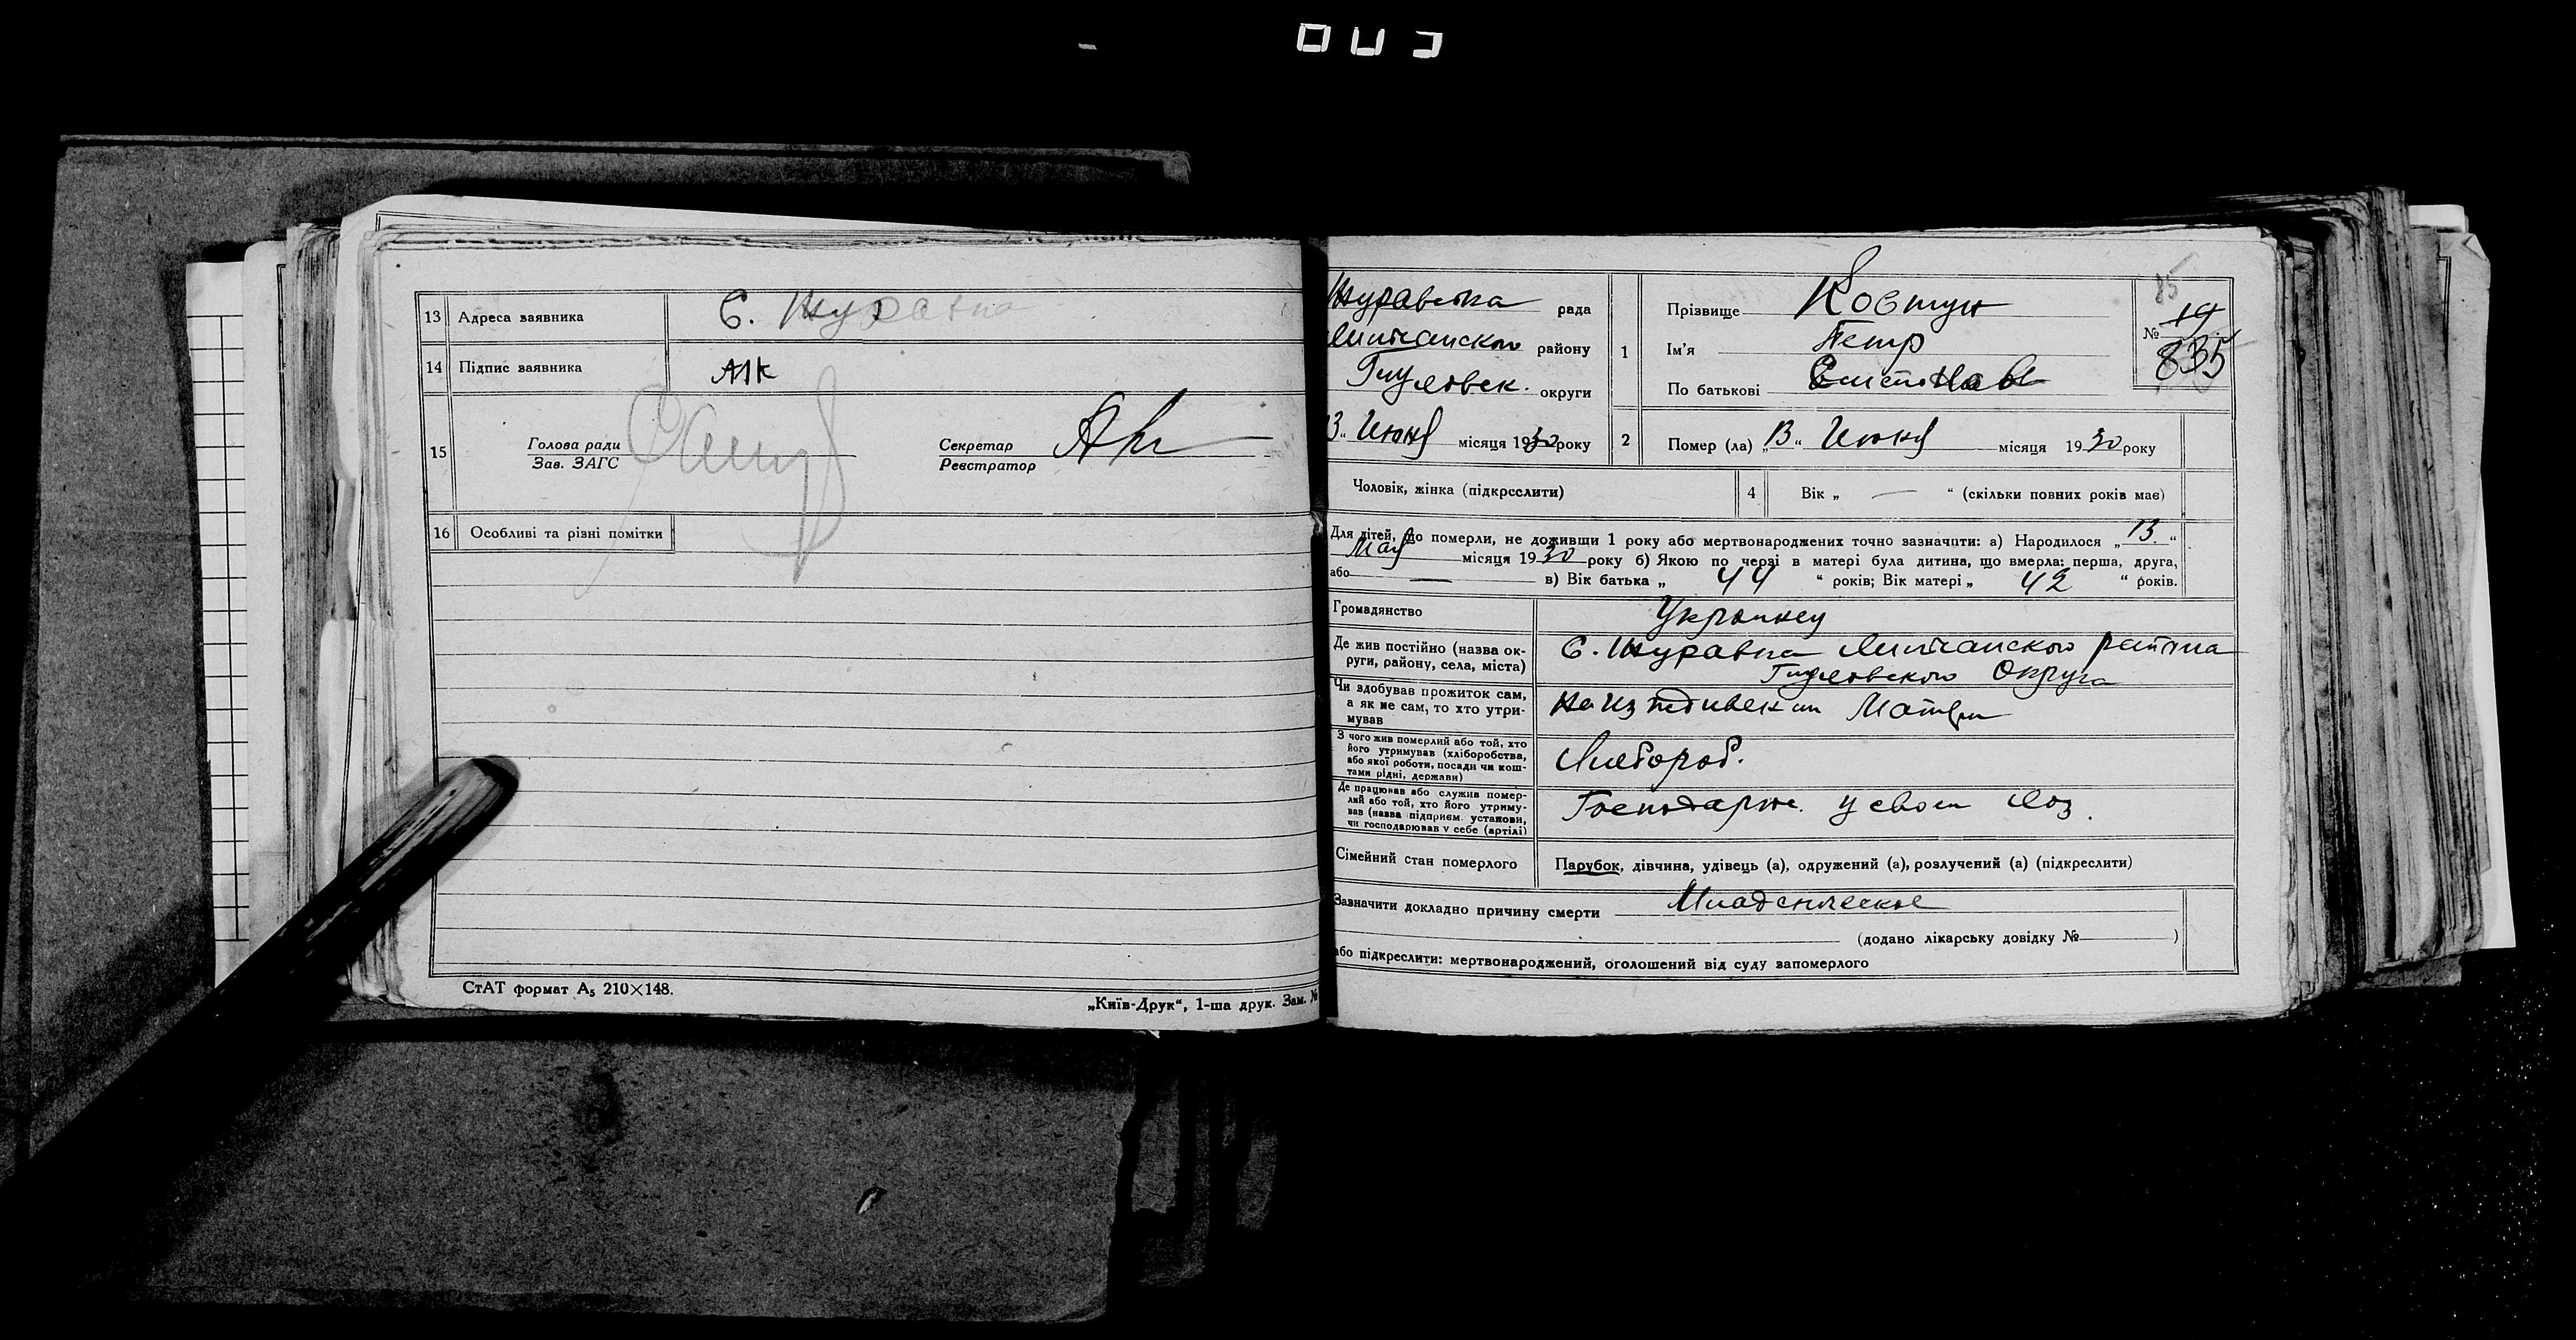 13 Адреса заявника С. Журавка
14 Підпис заявника АІК
15 Голова ради
Зав. ЗАГС
Секретар
Реєстратор
16 Особливі та різні помітки
СтАТ формат А₅ 210×148.
„Київ-Друк“, 1-ша друк. Зам. №
Журавська рада
району
округи
3 „ Июня місяця 1930 року
1 Прізвище Ковтун
Ім'я Петр
По батькові
85
№ 19
835
2 Помер (ла) „13“ Июня місяця 1930 року
Чоловік, жінка (підкреслити)
4 Вік „ — “ (скільки повних років має)
Для дітей, що померли, не доживши 1 року або мертвонароджених точно зазначити: а) Народилося „13“
Мая місяця 1930 року б) Якою по черзі в матері була дитина, що вмерла: перша, друга,
або — в) Вік батька „ 44 “ років; Вік матері „ 42 “ років.
Громадянство Украинец
Де жив постійно (назва ок-
руги, району, села, міста) С. Журавка
Округа
Чи здобував прожиток сам,
а як не сам, то хто утри-
мував На Матери
З чого жив померлий або той, хто
його утримував (хліборобства,
або якої роботи, посади чи кош-
тами рідні, держави) Хлебороб.
Де працював або служив помер-
лий або той, хто його утриму-
вав (назва підприєм. установи,
чи господарював у себе (артілі) у своем хоз.
Сімейний стан померлого Парубок, дівчина, удівець (а), одружений (а), розлучений (а) (підкреслити)
Зазначити докладно причину смерти Младенческое
(додано лікарську довідку № )
або підкреслити: мертвонароджений, оголошений від суду запомерлого